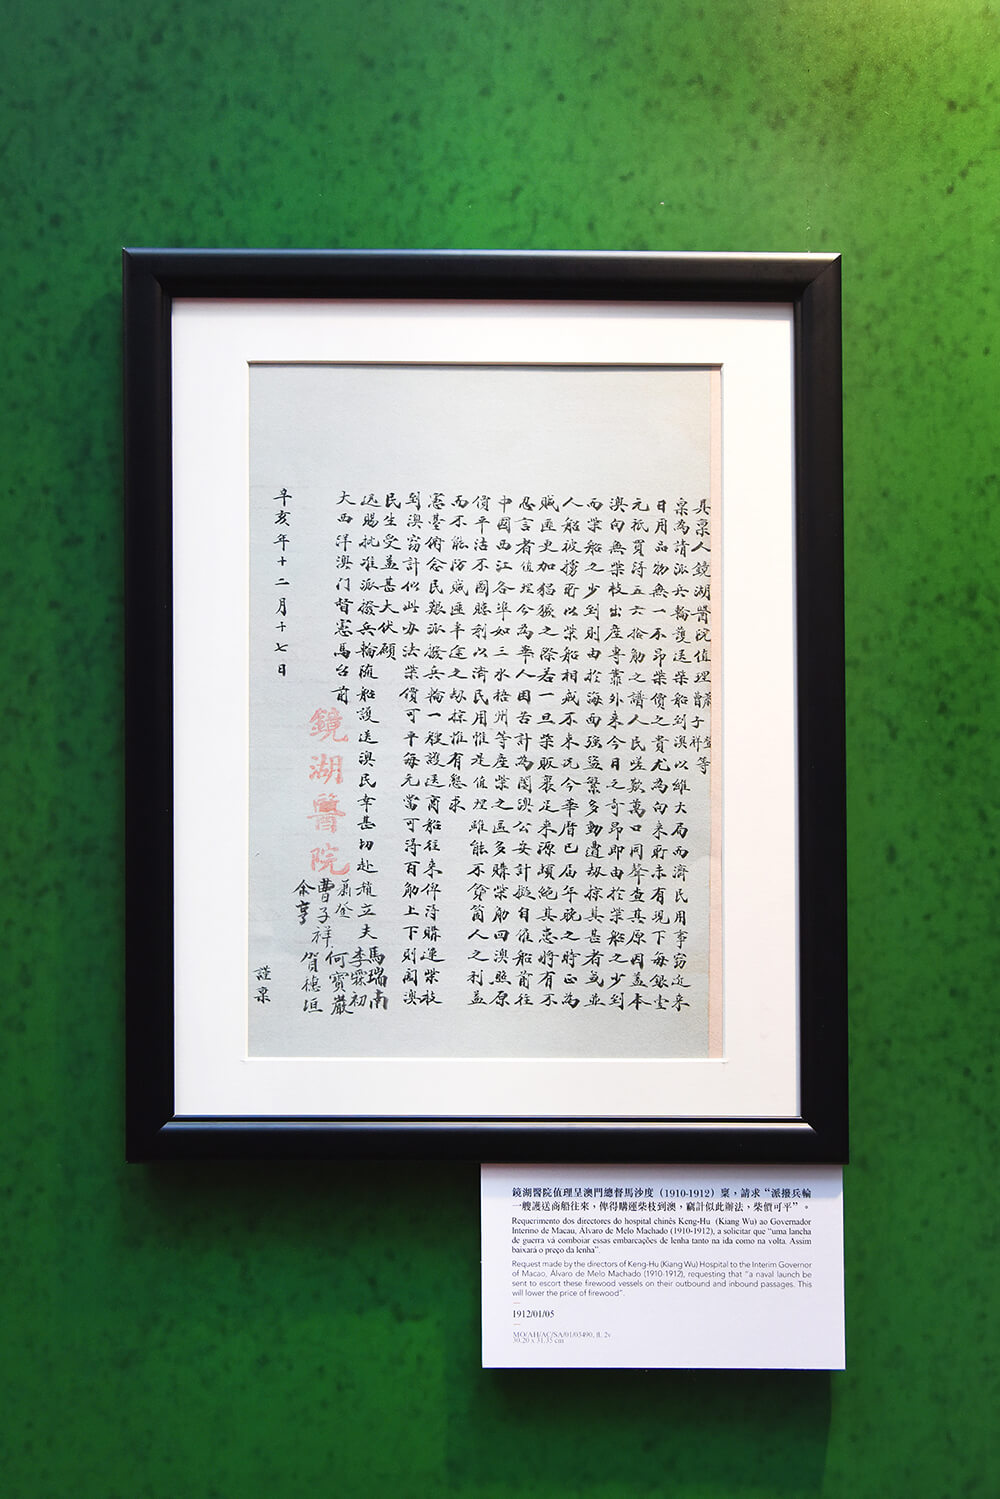 具稟人鏡湖醫院值理蕭登曹子祥等
稟為請派兵輪護送柴船到澳以維大局而濟民用事竊近來
日用品物無一不昂柴價之貴尤為向來所未有現下每銀壹
元祇買得五六拾觔之譜人民嗟歎萬口同聲查其原因蓋本
澳向無柴枝出產專靠外來今日之奇昂即由於柴船之少到
而柴船之少到則由於海面強盜繁多動遭劫掠其甚者或並
人船被擄所以柴船相戒不來況今華曆已屆年晚之時正為
賊匪更加猖獗之際若一旦柴販裹足來源頓絕其患將有不
忍言者值理今為華人困苦計為闔澳公安計擬自僱船前往
中國西江各埠如三水梧州等產柴之區多購柴觔回澳照原
價平沽不圖賺利以濟民用惟是值理雖能不貪箇人之利益
而不能防賊匪半途之劫掠惟有懇求
憲臺俯念民艱派撥兵輪一艘護送商船往來俾得購運柴枝
到澳竊計似此辦法柴價可平每元當可得百觔上下則闔澳
民生受益甚大伏願
迅賜批准派撥兵輪隨船護送澳民幸甚切赴
大西洋澳门督憲馬台前
鏡湖醫院
馬瑞南
趙立夫
李霖初
蕭登
何寶巖
曹子祥
賀穗垣
余亨
謹稟
辛亥年十二月十七日
鏡湖醫院值理呈澳門總督馬沙度（1910-1912）稟，請求“派撥兵輪
一艘護送商船往來，俾得購運柴枝到澳，竊計似此辦法，柴價可平”。
Requerimento dos directores do hospital chinês Keng-Hu (Kiang Wu) ao Governador
Interino de Macau, Álvaro de Melo Machado (1910-1912), a solicitar que “uma lancha
de guerra vá comboiar essas embarcações de lenha tanto na ida como na volta. Assim
baixará o preço da lenha”.
Request made by the directors of Keng-Hu (Kiang Wu) Hospital to the Interim Governor
of Macao, Álvaro de Melo Machado (1910-1912), requesting that “a naval launch be
sent to escort these firewood vessels on their outbound and inbound passages. This
will lower the price of firewood”.
1912/01/05
MO/AH/AC/SA/01/03490, fl. 2v
30.20 x 31.35 cm